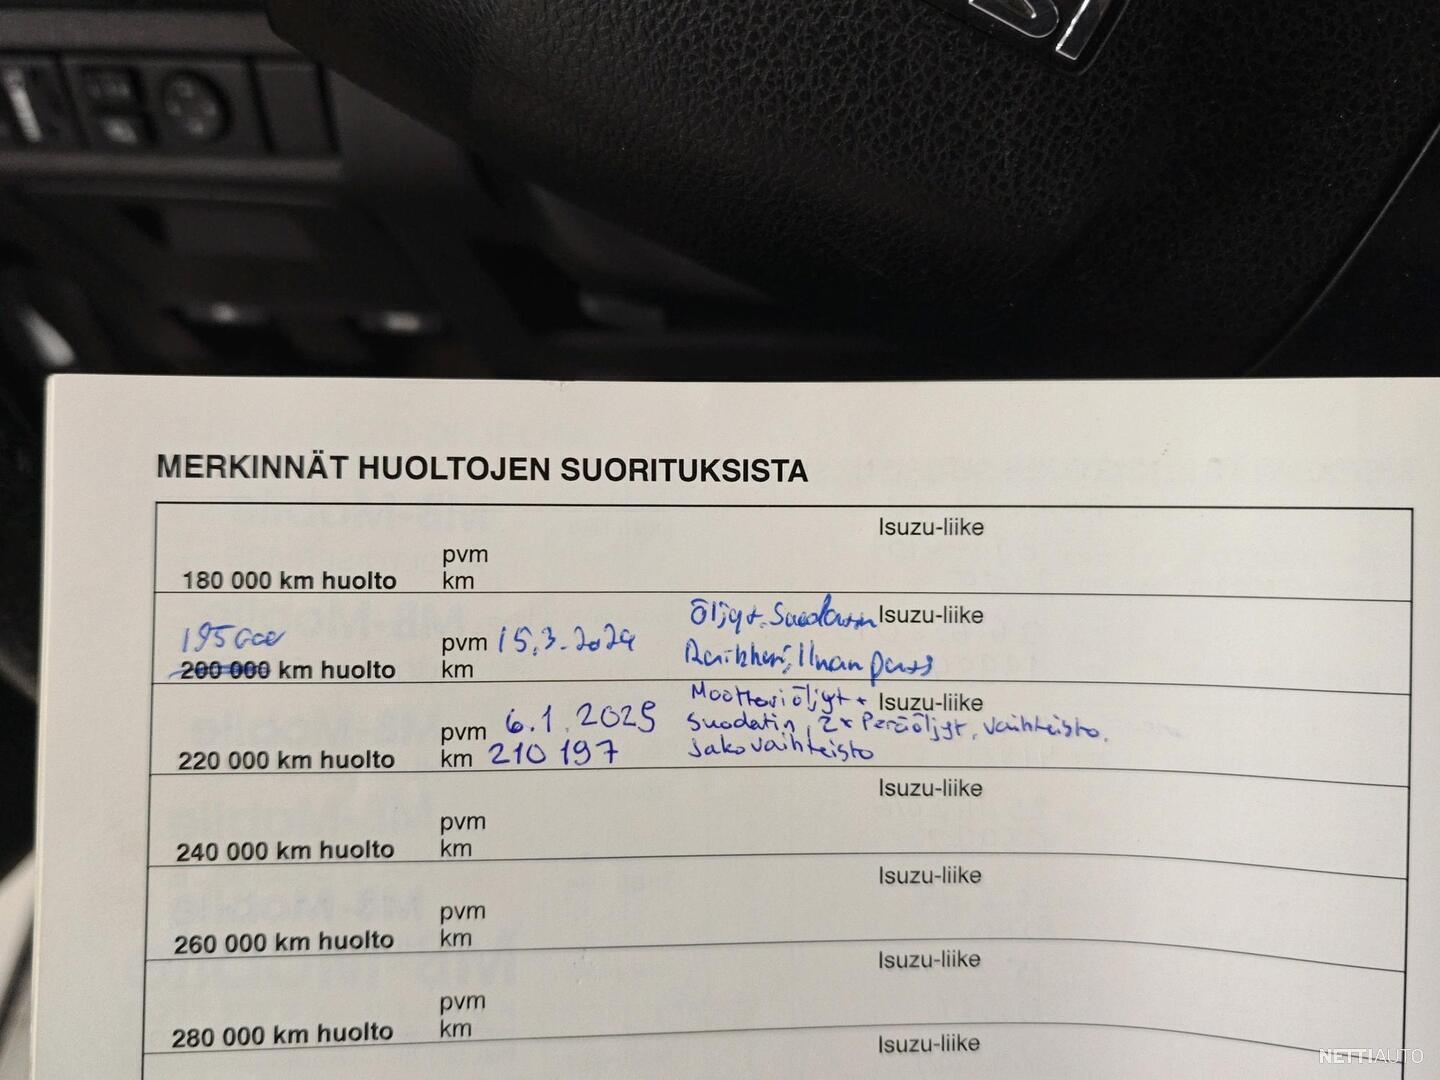 MERKINNÄT HUOLTOJEN SUORITUKSISTA
Isuzu-liike
pvm
180 000 km huolto km
öljyt, Suodatin Isuzu-liike
195000 pvm 15.3.2024
200 000 km huolto km
Moottoriöljyt + Isuzu-liike
pvm 6.1.2025 suodatin, 2x Peräöljyt, vaihteisto,
220 000 km huolto km 210 197 jakovaihteisto
Isuzu-liike
pvm
240 000 km huolto km
Isuzu-liike
pvm
260 000 km huolto km
Isuzu-liike
pvm
280 000 km huolto km
Isuzu-liike
NETTIAUTO